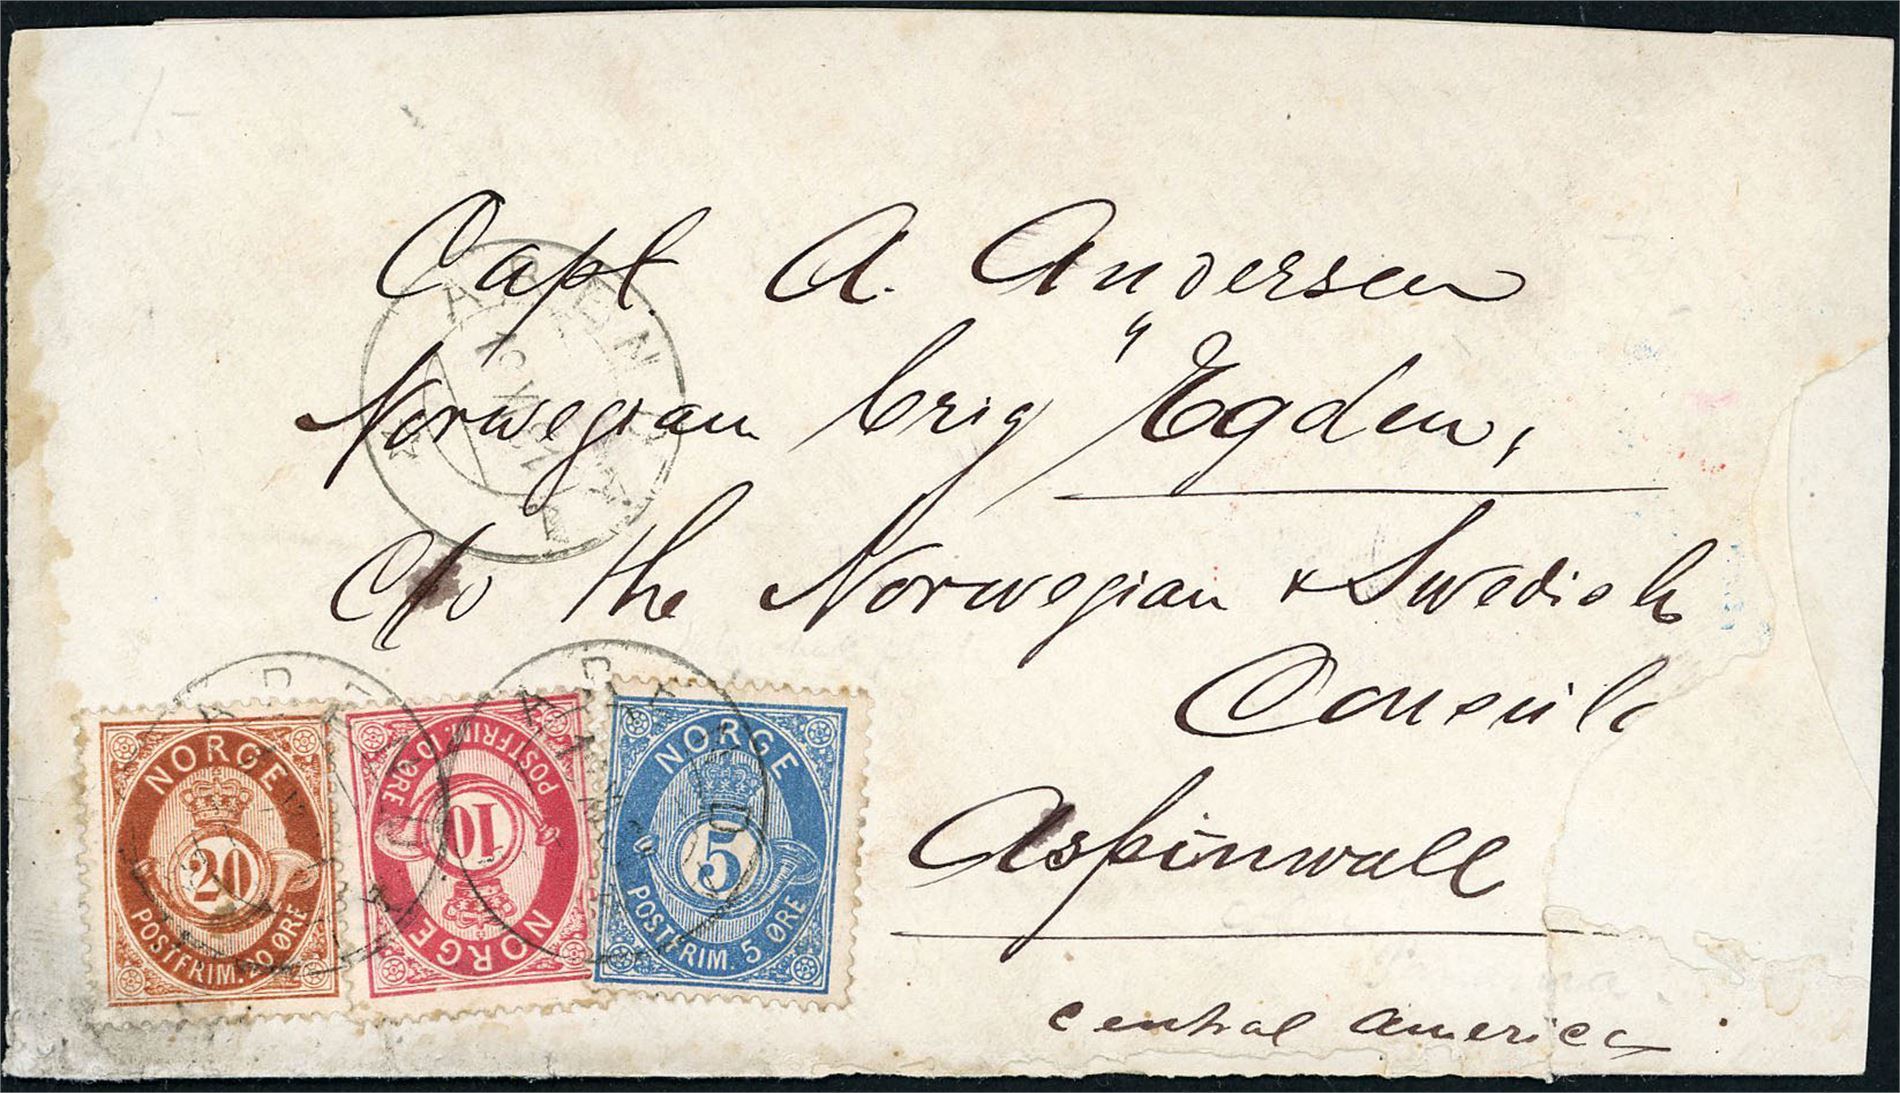 Capt. A. Andersen
Norwegian brig "Egden",
C/o the Norwegian & Swedish
Consul
Aspinwall
Central America
ARENDAL
ARENDAL
ARENDAL
NORGE
20
POSTFRIM. 20 ØRE
NORGE
10
POSTFRIM. 10 ØRE
NORGE
5
POSTFRIM. 5 ØRE